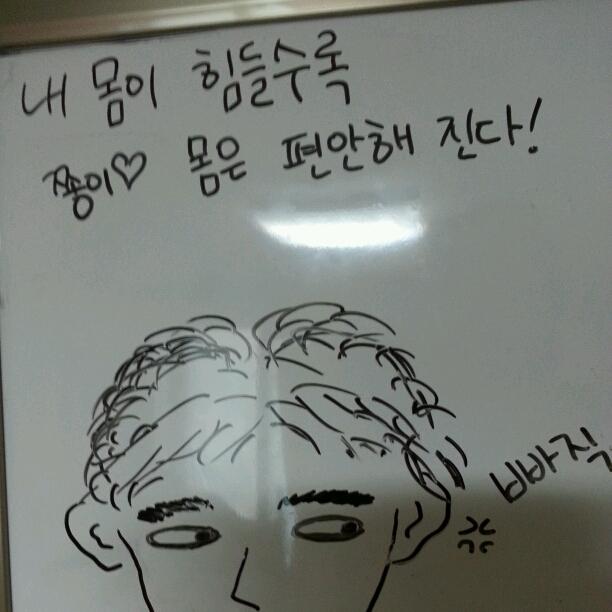 내 몸이 힘들수록
쫑이♡ 몸은 편안해 진다!
빠직